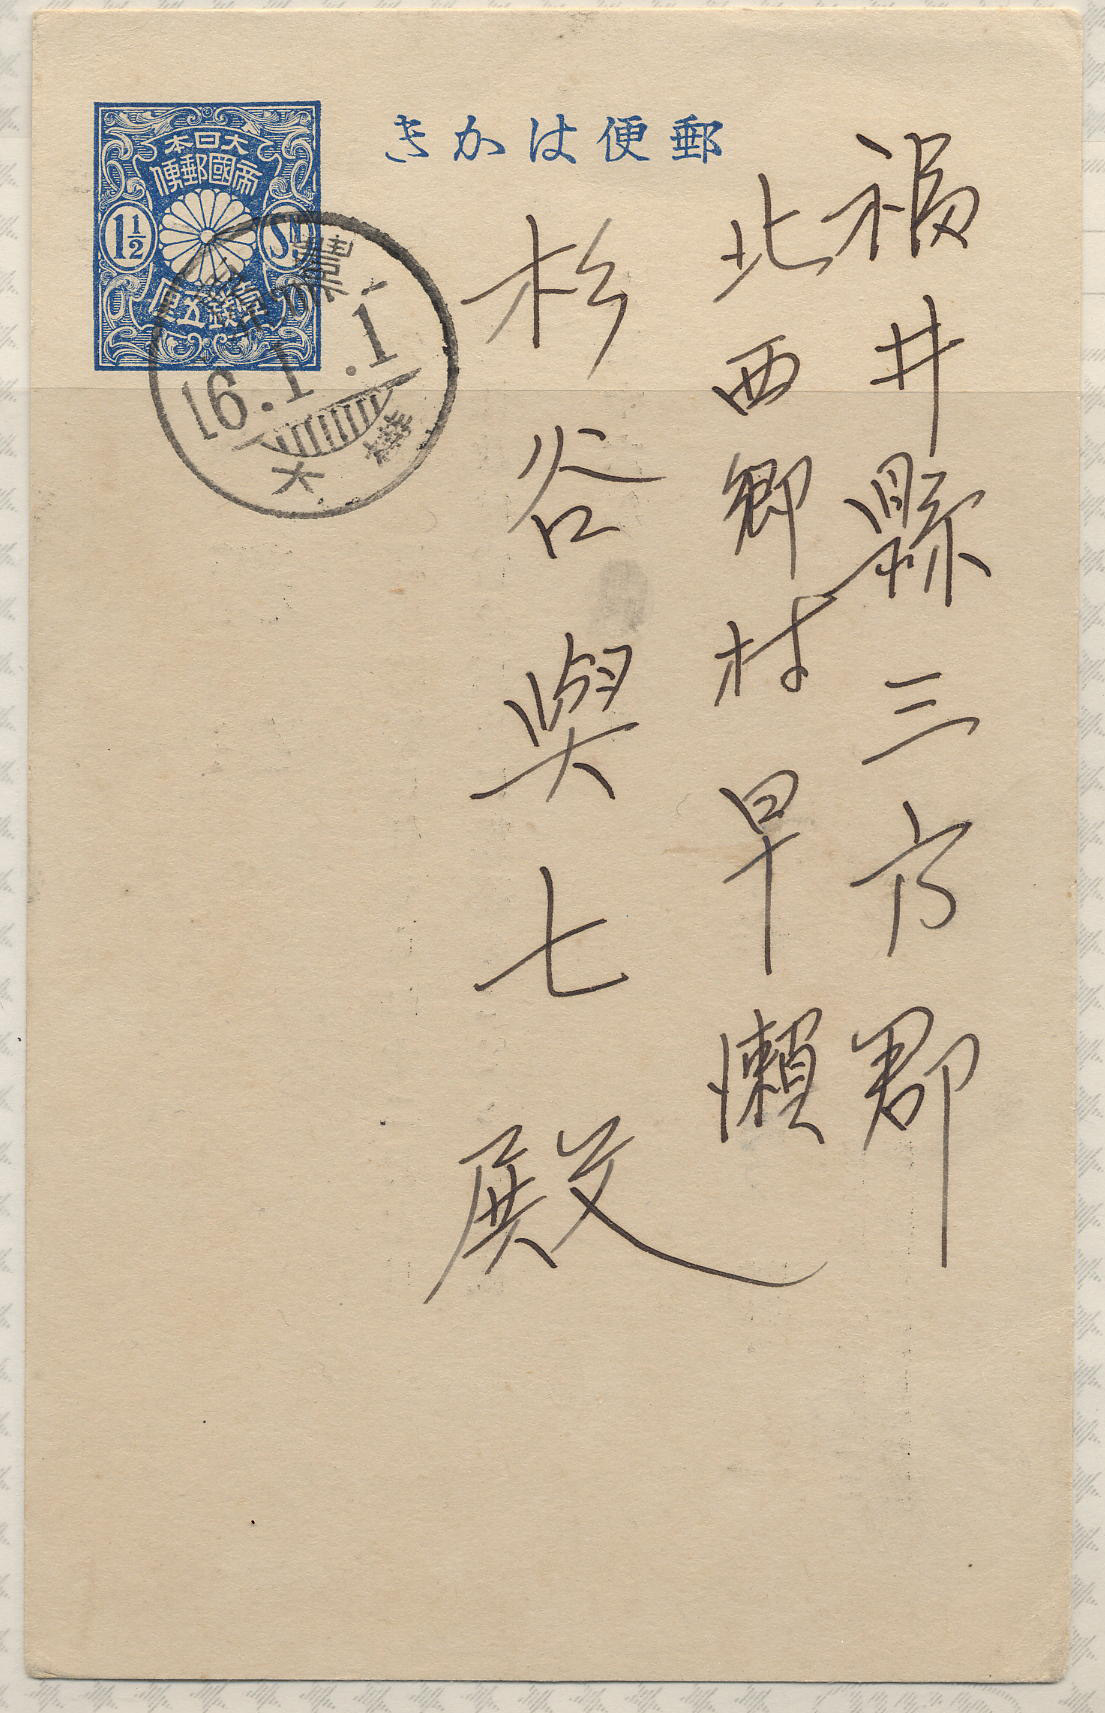 きかは便郵
大日本
帝國郵便
1½
Sn
壹銭五厘
16.1.1
大
福井縣三方郡
北西郷村早瀬
杉谷與七殿